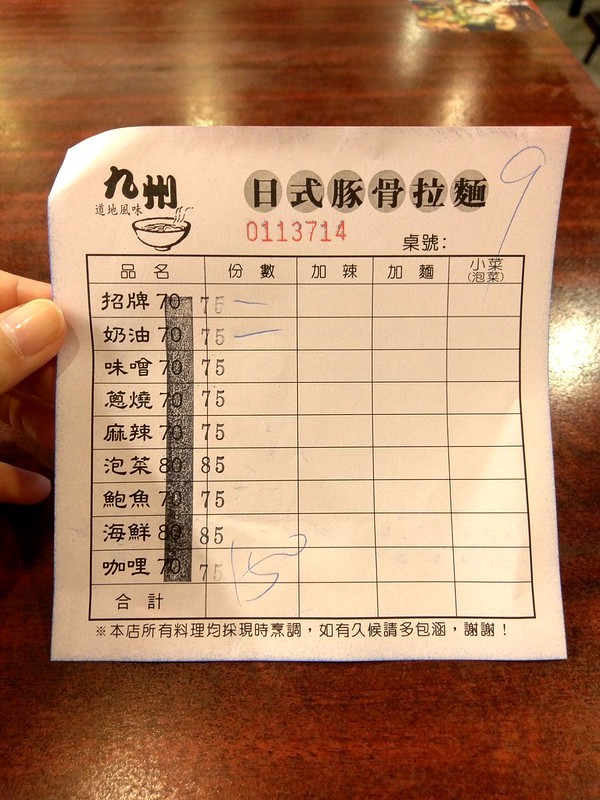 九州
道地風味
日式豚骨拉麵
0113714
桌號: 9
品名 份數 加辣 加麵 小菜(泡菜)
招牌 70 75 一
奶油 70 75 一
味噌 70 75
蔥燒 70 75
麻辣 70 75
泡菜 80 85
鮑魚 70 75
海鮮 80 85
咖哩 70 75
合計 150
※本店所有料理均採現時烹調，如有久候請多包涵，謝謝！